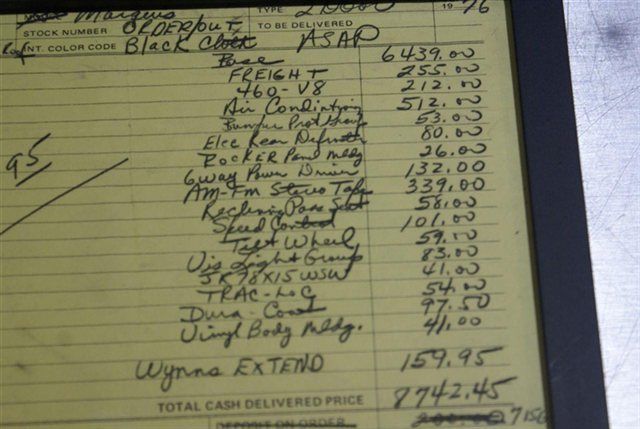 Marquis TYPE 19 76
STOCK NUMBER ORDER/OUT TO BE DELIVERED
INT. COLOR CODE Black Cloth ASAP
Base 6439.00
FREIGHT 255.00
460-V8 212.00
Air Condintiong 512.00
Bumper Prot Group 53.00
Elec Rear Defrost 80.00
ROCKER Panel Mldg 26.00
6way Power Driver 132.00
AM-FM Stereo Tape 339.00
Reclining Pass Seat 58.00
Speed Control 101.00
Tilt Wheel 59.00
Vis Light Group 83.00
JR78X15 WSW 41.00
TRAC-Loc 54.00
Dura-Coat 97.50
Vinyl Body Mldg. 41.00
95
Wynns EXTEND 159.95
TOTAL CASH DELIVERED PRICE 8742.45
DEPOSIT ON ORDER 200.00